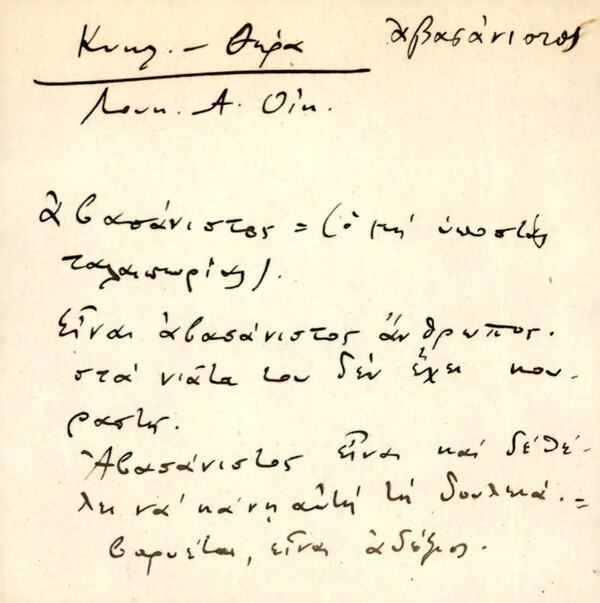 Κυκλ. – Θήρα ἀβασάνιστος
Λουκ. Α. Οἰκ.
ἀβασάνιστος = (ὁ μή ὑποστάς
ταλαιπωρίας).
Εἶναι ἀβασάνιστος ἄνθρωπος.
στά νιᾶτα του δέν ἔχει κου-
ραστῆ.
Ἀβασάνιστος εἶναι καί δέ θέ-
λει νά κάνῃ αὐτή τή δουλειά. =
βαριέται, εἶναι ἀδέξιος.